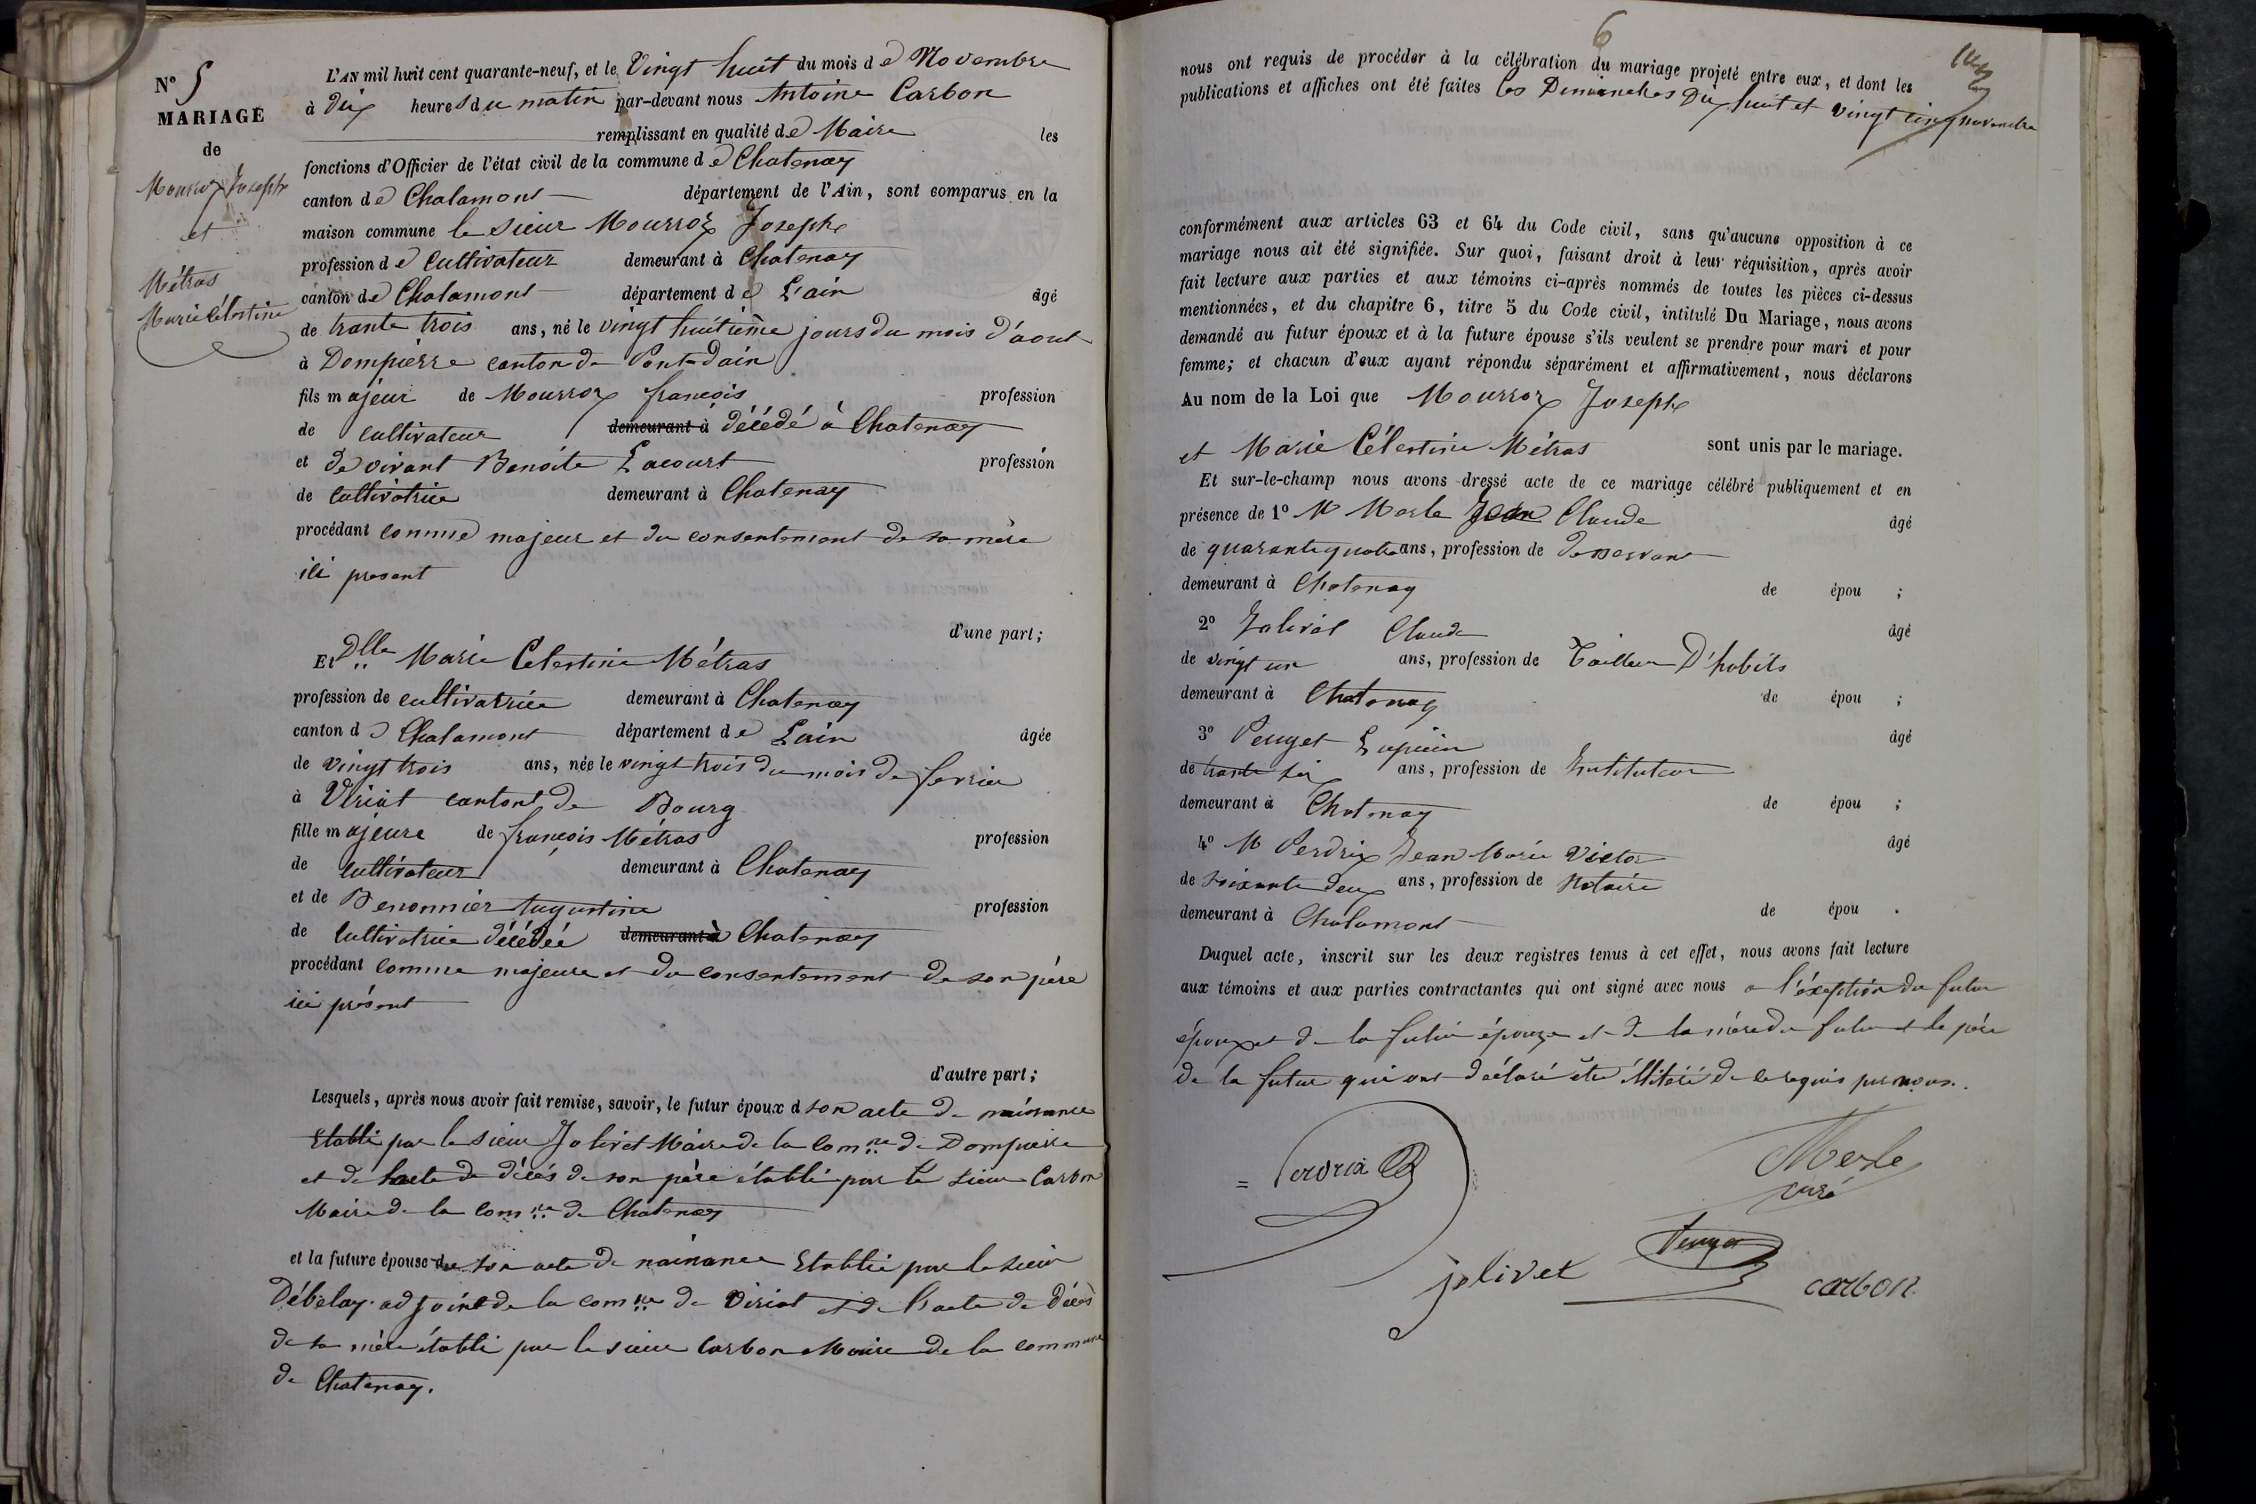 N° 5
MARIAGE
de
Mourroz Joseph
et
Métras
Marie Célestine
L'AN mil huit cent quarante-neuf, et le Vingt huit du mois de Novembre
à dix heures du matin par-devant nous Antoine Carbon
remplissant en qualité de Maire les
fonctions d'Officier de l'état civil de la commune de Chatenay
canton de Chalamont département de l'Ain, sont comparus en la
maison commune le sieur Mourroz Joseph
profession de Cultivateur demeurant à Chatenay
canton de Chalamont département de L'ain âgé
de trante trois ans, né le vingt huitième jours du mois d'aout
à Dompierre canton de Pont-dain
fils majeur de Mourroz françois profession
de cultivateur demeurant à décédé à Chatenay
et de vivant Benoite Lacourt profession
de Cultivatrice demeurant à Chatenay
procédant comme majeur et du consentement de sa mère
ici present
d'une part;
Et Dlle Marie Celestine Métras
profession de cultivatrice demeurant à Chatenay
canton de Chalamont département de Lain âgée
de vingt trois ans, née le vingt trois du mois de fevrier
à Viriat cantont de Bourg
fille majeure de françois Métras profession
de Cultivateur demeurant à Chatenay
et de Benonnier Augustine profession
de Cultivatrice décédée demeurant à Chatenay
procédant comme majeure et du consentement de son père
ici présent
d'autre part;
Lesquels, après nous avoir fait remise, savoir, le futur époux d son acte de naissance
Etabli par le sieur Jolivet Maire de la Comne de Dompierre
et de l'acte de décés de son père établi par le sieur Carbon
Maire de la Comne de Chatenay
et la future épouse de son acte de naissance Etablie par le sieur
Débelay adjoint de la comne de Viriat et de l'acte de Décès
de sa mère établi par le sieur Carbon Maire de la commune
de Chatenay.
6
nous ont requis de procéder à la célébration du mariage projeté entre eux, et dont les
publications et affiches ont été faites les Dimanches Dix huit et vingt cinq novembre
conformément aux articles 63 et 64 du Code civil, sans qu'aucune opposition à ce
mariage nous ait été signifiée. Sur quoi, faisant droit à leur réquisition, après avoir
fait lecture aux parties et aux témoins ci-après nommés de toutes les pièces ci-dessus
mentionnées, et du chapitre 6, titre 5 du Code civil, intitulé Du Mariage, nous avons
demandé au futur époux et à la future épouse s'ils veulent se prendre pour mari et pour
femme; et chacun d'eux ayant répondu séparément et affirmativement, nous déclarons
Au nom de la Loi que Mourroz Joseph
et Marie Célestine Métras sont unis par le mariage.
Et sur-le-champ nous avons dressé acte de ce mariage célébré publiquement et en
présence de 1° M Merle Jean Claude âgé
de quarante quatre ans, profession de desservant
demeurant à Chatenay de épou ;
2° Jolivet Claude âgé
de vingt un ans, profession de Tailleur D'habits
demeurant à Chatenay de épou ;
3° Peuget Lupicin âgé
de trante six ans, profession de Instituteur
demeurant à Chatenay de épou ;
4° M Perdrix Jean Marie Victor âgé
de soixante deux ans, profession de Notaire
demeurant à Chalamont de épou .
Duquel acte, inscrit sur les deux registres tenus à cet effet, nous avons fait lecture
aux témoins et aux parties contractantes qui ont signé avec nous a l'éxeption du futur
époux et de la future épouze et de la mère du futur et le père
de la futur qui ont déclaré être illiteré de ce requis par nous.
Perdrix
Merle
curé
jolivet
Peuget
carbon